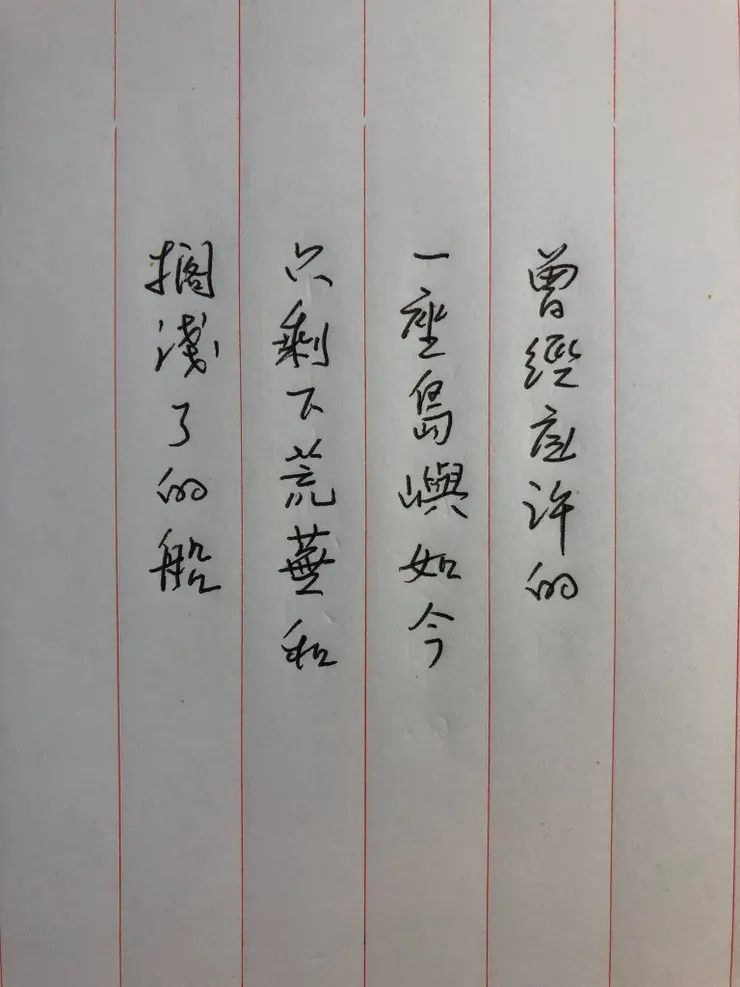 曾經應許的
一座島嶼如今
只剩下荒蕪和
擱淺了的船